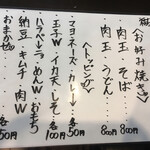 〈お好み焼き〉
肉玉 そば 800円
肉玉 うどん 800円
〈トッピング〉
マヨネーズ・カレー 各50円
玉子W・イカ天・しそ 各100円
ハラペ・ラーめんW・おもち
納豆・キムチ・肉W 各150円
おまかせ